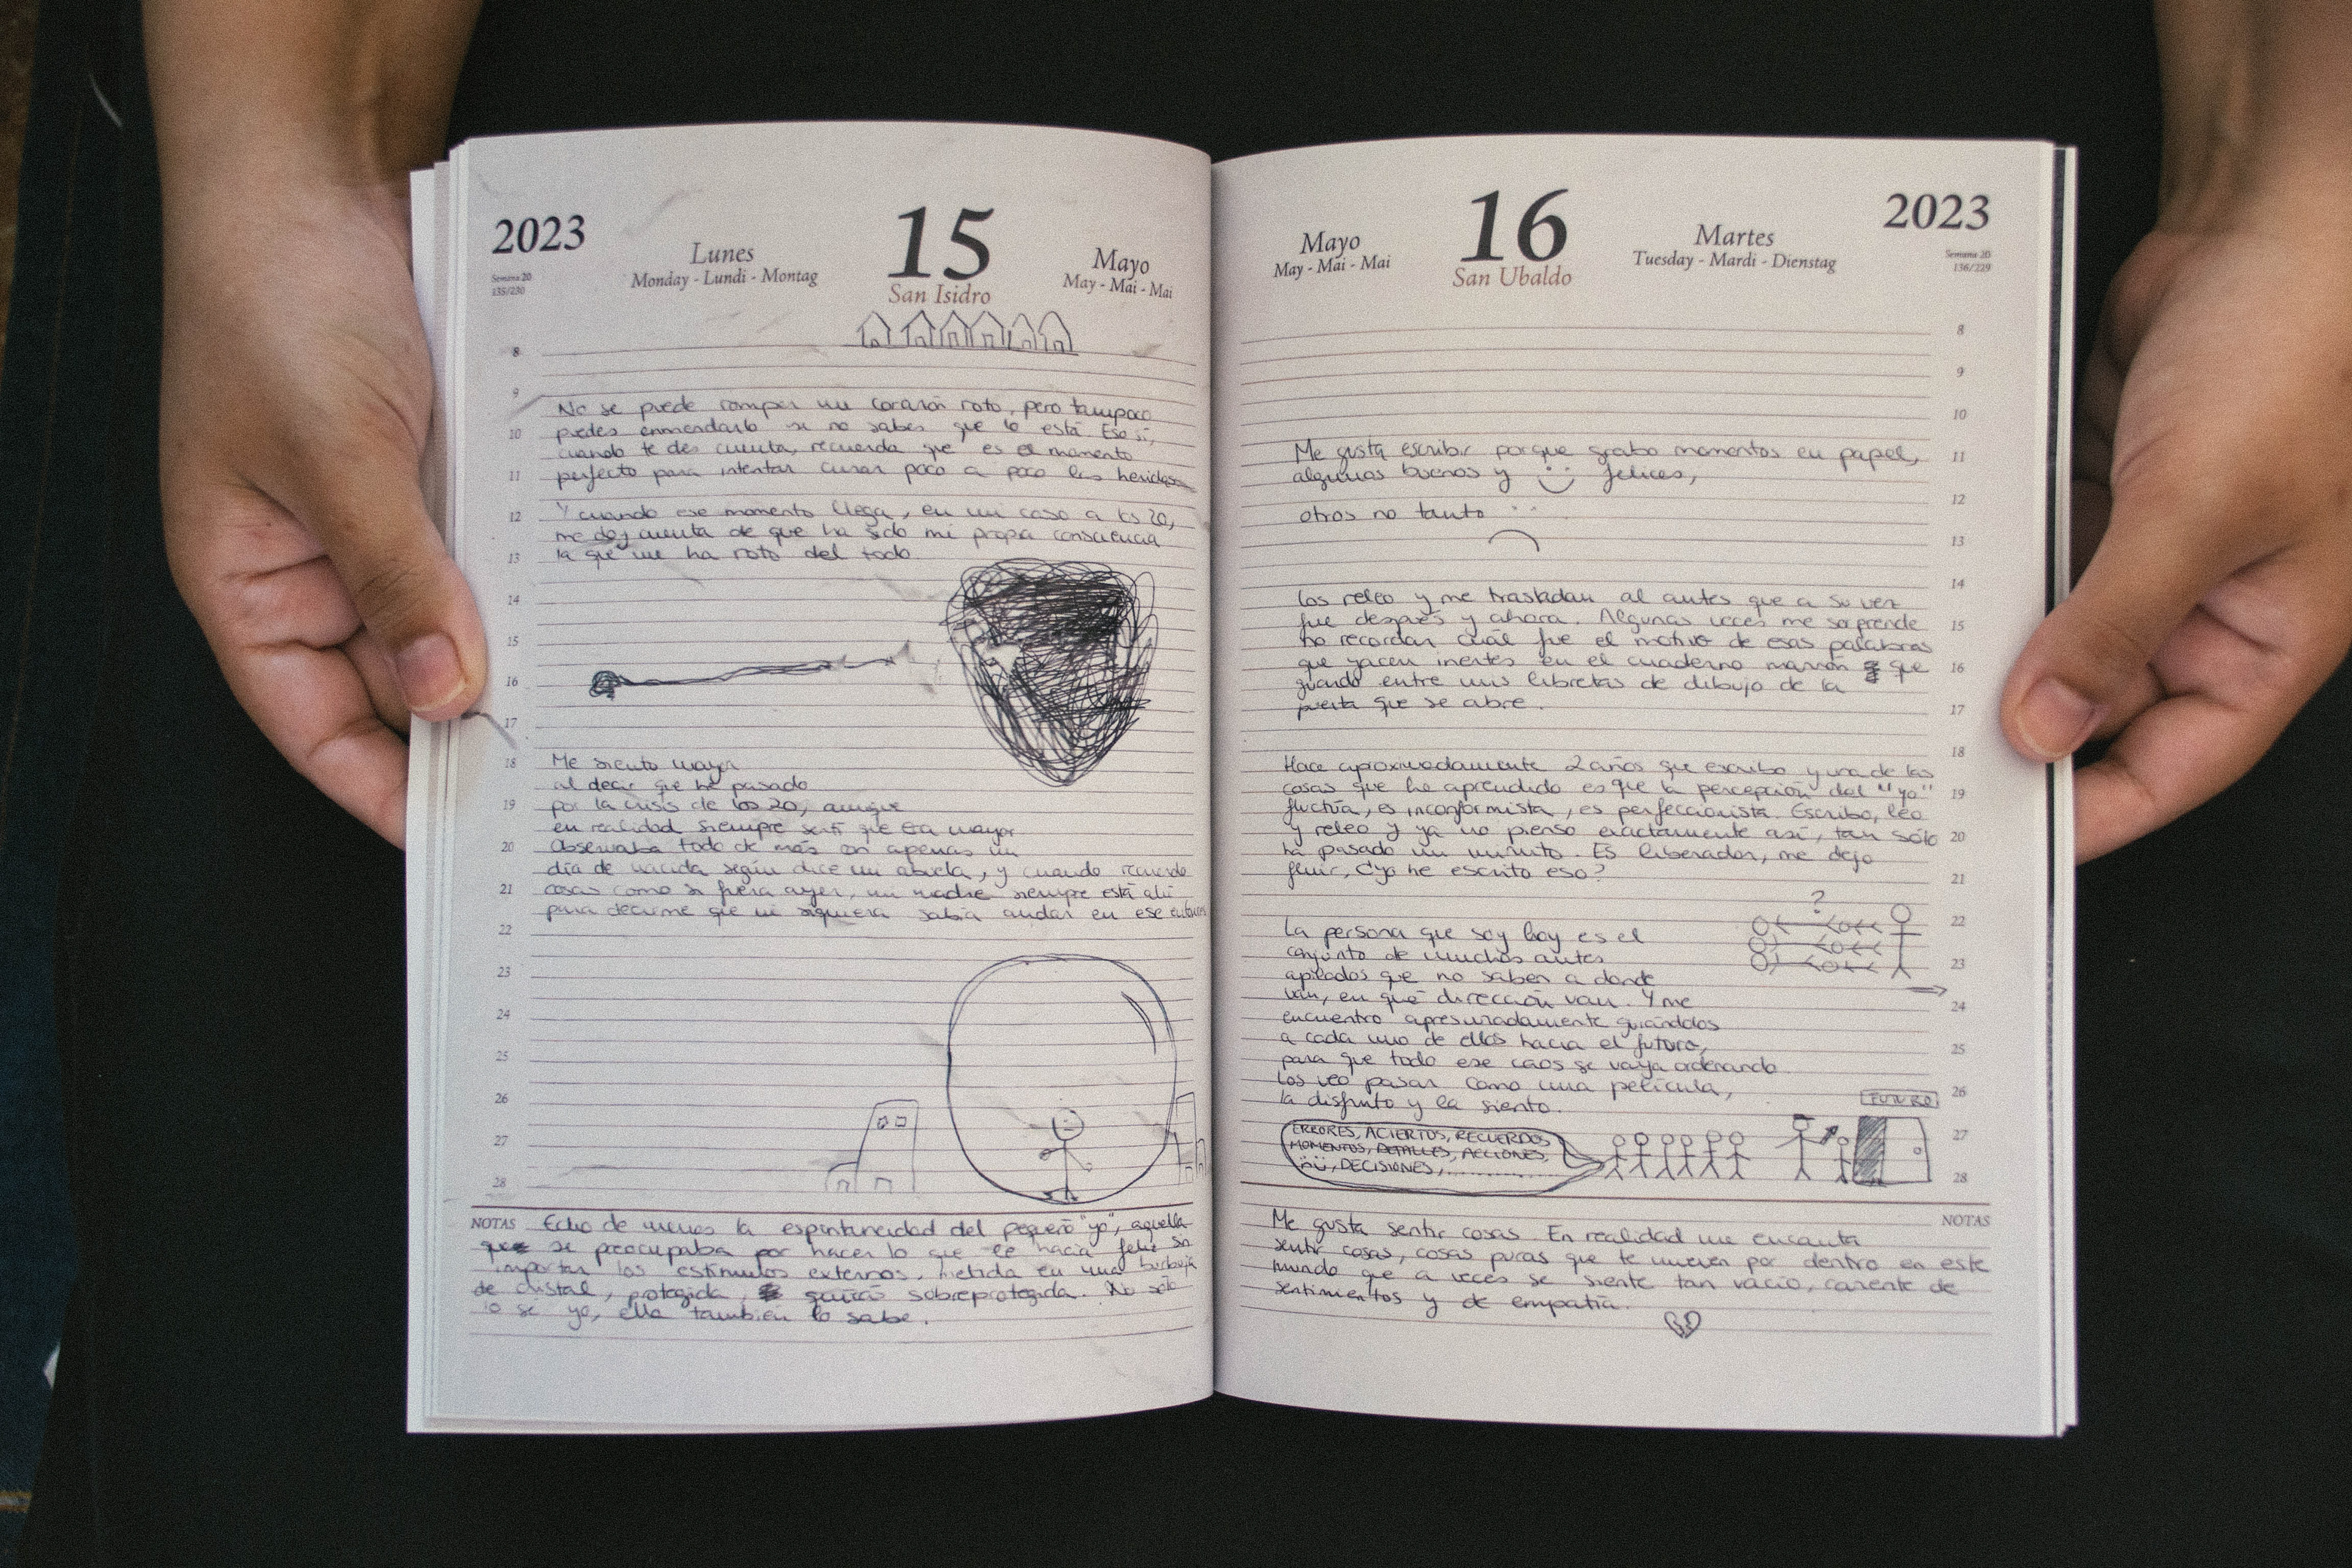 2023
Semana 20
135/230
Lunes
Monday - Lundi - Montag
15
San Isidro
Mayo
May - Mai - Mai
8
9
No se puede romper un corazón roto, pero tampoco
10 puedes enmendarlo si no sabes que lo está. Eso sí,
cuando te des cuenta, recuerda que es el momento
11 perfecto para intentar curar poco a poco las heridas
12 Y cuando ese momento llega, en mi caso a ls 20,
me doy cuenta de que ha sido mi propia consciencia
13 la que me ha roto del todo.
14
15
16
17
18 Me siento mayor
al decir que he pasado
19 por la crisis de los 20, aunque
en realidad siempre sentí que era mayor
20 Observaba todo de más con apenas un
día de nacida según dice mi abuela, y cuando recuerdo
21 cosas como si fuera ayer, mi madre siempre está ahí
para decirme que ni siquiera sabía andar en ese entonces
22
23
24
25
26
27
28
NOTAS Echo de menos la espontaneidad del pequeño "yo", aquella
que se preocupaba por hacer lo que le hacía feliz sin
importar los estímulos externos. Metida en una burbuja
de cristal, protegida, quizás sobreprotegida. No sólo
lo se yo, ella también lo sabe.
Mayo
May - Mai - Mai
16
San Ubaldo
Martes
Tuesday - Mardi - Dienstag
2023
Semana 20
136/229
8
9
10
Me gusta escribir porque grabo momentos en papel, 11
algunos buenos y felices,
12
otros no tanto
13
14
los releo y me trasladan al antes que a su vez
fue después y ahora. Algunas veces me sorprende 15
no recordar cuál fue el motivo de esas palabras
que yacen inertes en el cuaderno marrón que 16
guardo entre mis libretas de dibujo de la
puerta que se abre. 17
18
Hace aproximadamente 2 años que escribo y una de las
cosas que he aprendido es que la percepción del "yo" 19
fluctúa, es inconformista, es perfeccionista. Escribo, leo
y releo y ya no pienso exactamente así, tan sólo 20
ha pasado un minuto. Es liberador, me dejo
fluir, ¿yo he escrito eso? 21
?
22
La persona que soy hoy es el
conjunto de muchos antes 23
apilados que no saben a donde
van, en qué dirección van. Y me 24
encuentro apresuradamente guiándolos
a cada uno de ellos hacia el futuro, 25
para que todo ese caos se vaya ordenando.
Los veo pasar como una película, 26
la disfruto y la siento.
FUTURO
ERRORES, ACIERTOS, RECUERDOS 27
MOMENTOS, DETALLES, ACCIONES,
DECISIONES, ............ 28
NOTAS
Me gusta sentir cosas. En realidad me encanta
sentir cosas, cosas puras que te mueven por dentro en este
mundo que a veces se siente tan vacío, carente de
sentimientos y de empatía.